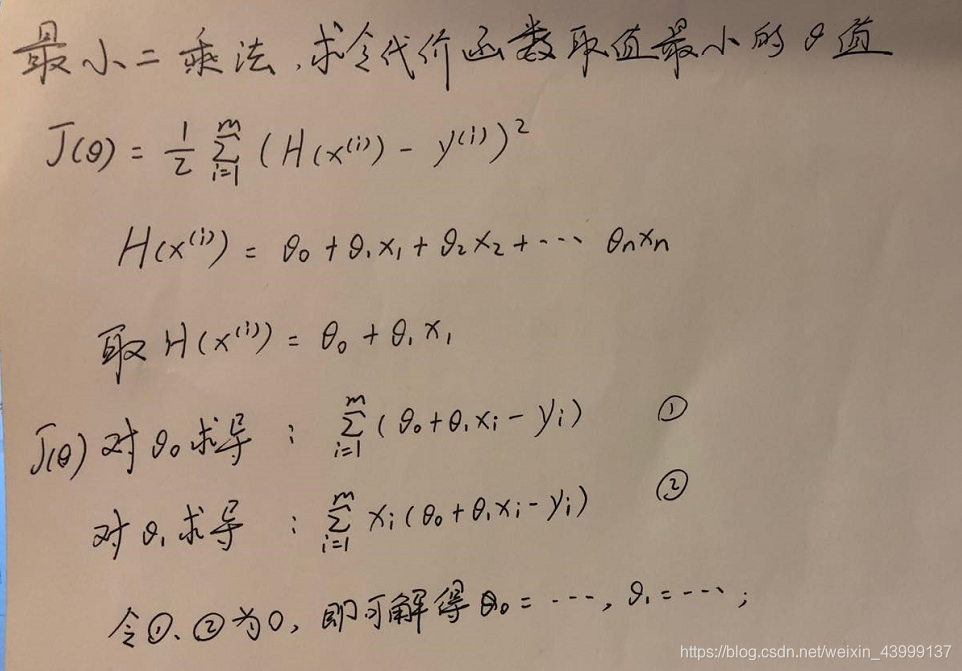 最小二乘法,求令代价函数取值最小的θ值
J(θ) = 1/2 ∑_{i=1}^{m} (H(x^{(i)}) - y^{(i)})^2
H(x^{(i)}) = θ₀ + θ₁x₁ + θ₂x₂ + ··· θₙxₙ
取 H(x^{(i)}) = θ₀ + θ₁x₁
J(θ) 对θ₀求导 : ∑_{i=1}^{m} (θ₀+θ₁xᵢ-yᵢ) ①
对θ₁求导 : ∑_{i=1}^{m} xᵢ(θ₀+θ₁xᵢ-yᵢ) ②
令①、②为0, 即可解得θ₀= ···, θ₁= ···;
https://blog.csdn.net/weixin_43999137